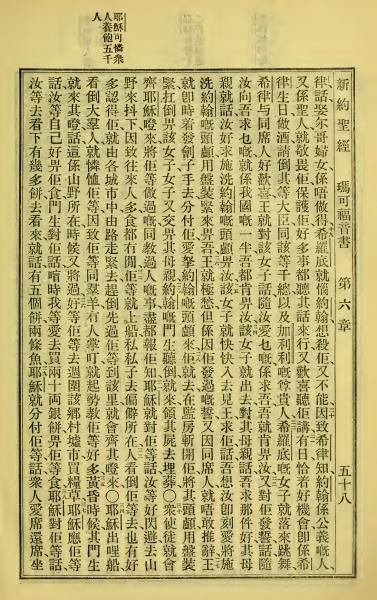 耶穌可憐衆
人養飽五千
人
新約聖經　瑪可福音書　第六章　五十八
律話娶尔哥婦女係唔做得、希羅底就惱約翰想殺佢又不能、因致希律知約翰係公義嘅人、
又係聖人、就敬畏佢保護佢好多事都聽其話來行、又歡喜聽佢講、有日恰着好機會卽係希
律生日做酒請倒其等大臣同該等千總以及加利利嘅尊貴人、希羅底嘅女子就落來跳舞
希律與同席人好歡喜、王就對該女子話隨汝愛乜嘅係求吾吾就肯畀汝、又對佢發誓話隨
汝向吾求乜嘅就係我國嘅一半吾都肯畀汝、該女子就出去對其母親話吾求那件好、其母
親就話汝好求施洗約翰嘅頭顱畀汝、該女子就快快入去見王求佢話吾想汝卽刻愛將施
洗約翰嘅頭顱用盤裝緊來畀吾、王就極愁但係因佢發過嘅誓又因同席人就唔敢推辭、王
就卽時着發劊子手去分付佢愛拏約翰嘅頭顱來、佢就去在監房斬開佢將其頭顱用盤裝
緊扛倒畀該女子、女子又交畀其母親、約翰嘅門生聽倒就來領其屍去埋葬、〇衆使徒就會
齊耶穌嶝來將佢等做過嘅同教過人嘅事盡都報佢知、耶穌就對佢等話汝等好閃避去山
野來抖下、因致往來人多食都有閒、佢等就上船私私子去偏僻所在、人看倒佢等去也有好
多認得佢、就由各城市中由路走緊去趕倒先過佢等到該里就會齊其嶝來、〇耶穌出哩船
看倒大羣人就憐憫佢等、因致佢等同羣羊冇人掌叮、就起勢教佢等好多、黃昏時候其門生
就來其嶝話這係山野所在時候又將過、好等佢等去週圍該鄉村墟市買糧草、耶穌應佢等
話汝等自己好畀佢食、門生對佢話唔時我等愛去買兩十両銀餅畀佢等食、耶穌對佢等話
汝等去看下有幾多餅、去看來就話有五個餅兩條魚、耶穌就分付佢等話衆人愛席還席坐